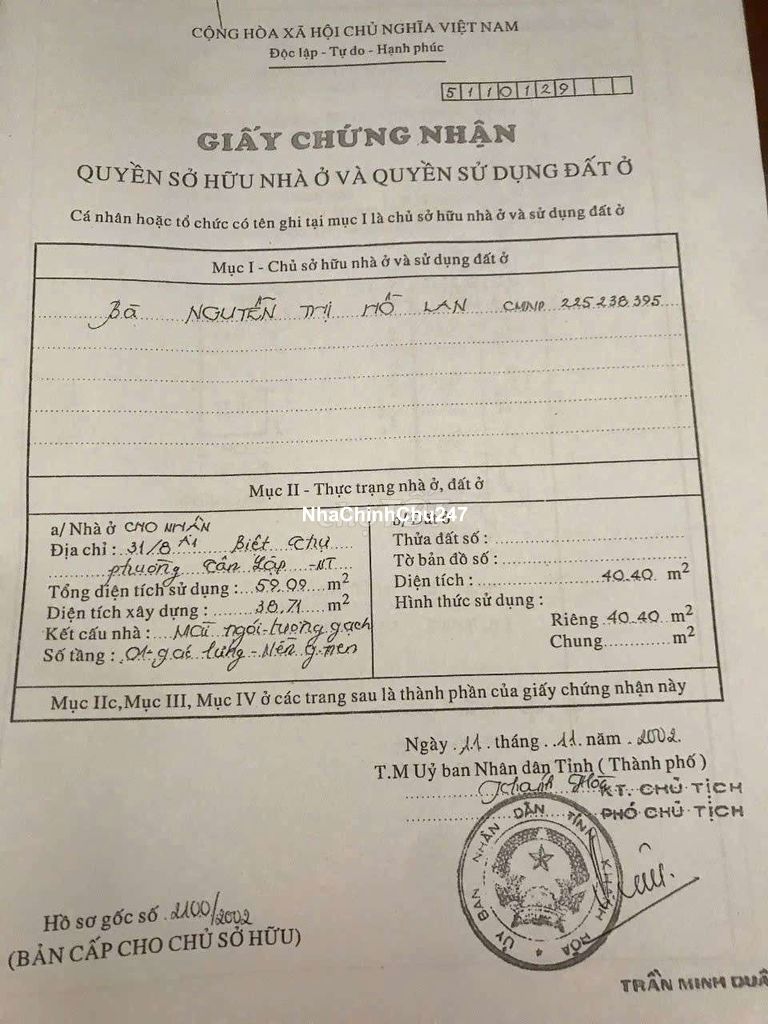 CỘNG HÒA XÃ HỘI CHỦ NGHĨA VIỆT NAM
Độc lập - Tự do - Hạnh phúc
5110129
GIẤY CHỨNG NHẬN
QUYỀN SỞ HỮU NHÀ Ở VÀ QUYỀN SỬ DỤNG ĐẤT Ở
Cá nhân hoặc tổ chức có tên ghi tại mục I là chủ sở hữu nhà ở và sử dụng đất ở
Mục I - Chủ sở hữu nhà ở và sử dụng đất ở
Bà NGUYỄN THỊ HỒ LAN CMND 225238395
Mục II - Thực trạng nhà ở, đất ở
NhaChinhChu247
a/ Nhà ở CHO NHÂN
Địa chỉ : 31/8 Biệt Thự
phường Tân Lập - NT
Tổng diện tích sử dụng : 59.09 m2
Diện tích xây dựng : 38.71 m2
Kết cấu nhà : Mái ngói - tường gạch
Số tầng : 01 - gác lửng - Nền g men
b/ Đất ở
Thửa đất số :
Tờ bản đồ số :
Diện tích : 40.40 m2
Hình thức sử dụng :
Riêng 40.40 m2
Chung m2
Mục IIc, Mục III, Mục IV ở các trang sau là thành phần của giấy chứng nhận này
Ngày 11 tháng 11 năm 2002.
T.M Uỷ ban Nhân dân Tỉnh ( Thành phố )
Khánh Hòa
KT. CHỦ TỊCH
PHÓ CHỦ TỊCH
ỦY BAN NHÂN DÂN TỈNH KHÁNH HÒA
Hồ sơ gốc số 2100/2002
(BẢN CẤP CHO CHỦ SỞ HỮU)
TRẦN MINH DUÂ